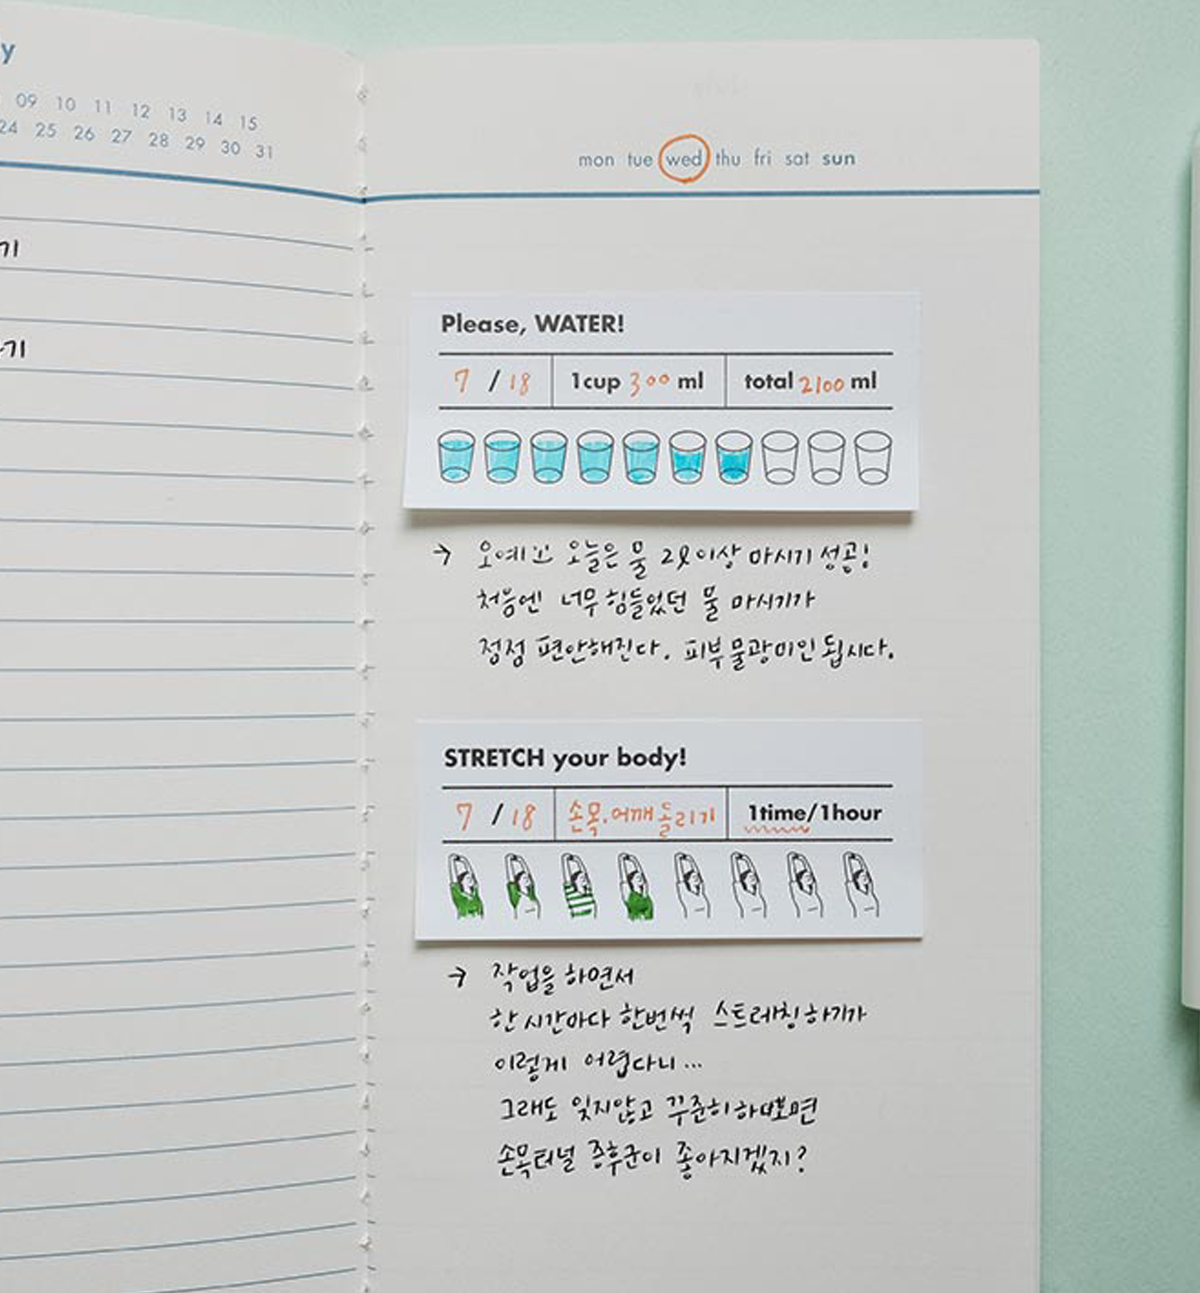 y
09 10 11 12 13 14 15
24 25 26 27 28 29 30 31
기
기
mon tue wed thu fri sat sun
Please, WATER!
7 / 18 1cup 300 ml total 2100 ml
→ 오예!! 오늘은 물 2l 이상 마시기 성공!
처음엔 너무 힘들었던 물 마시기가
점점 편안해진다. 피부 물광미인 됩시다.
STRETCH your body!
7 / 18 손목.어깨 돌리기 1time/1hour
→ 작업을 하면서
한 시간마다 한번씩 스트레칭하기가
이렇게 어렵다니...
그래도 잊지않고 꾸준히 하다보면
손목터널 증후군이 좋아지겠지?